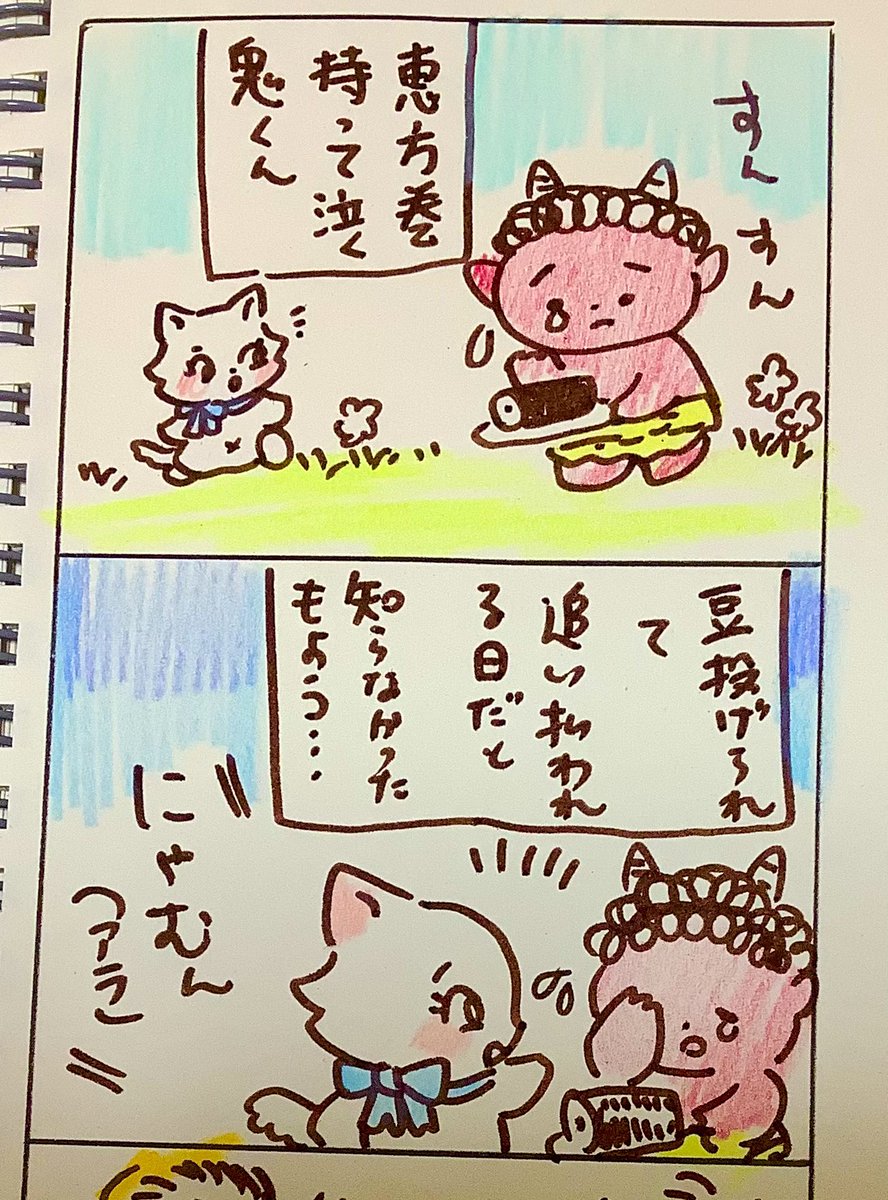 恵方巻
持って泣く
鬼くん
すん
すん
豆投げられ
て
追い払われ
る日だと
知らなかった
もよう…
にゃむん
(アラ)